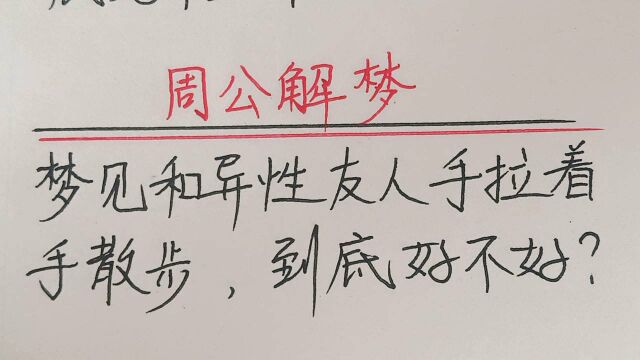 周公解梦
梦见和异性友人手拉着
手散步，到底好不好？